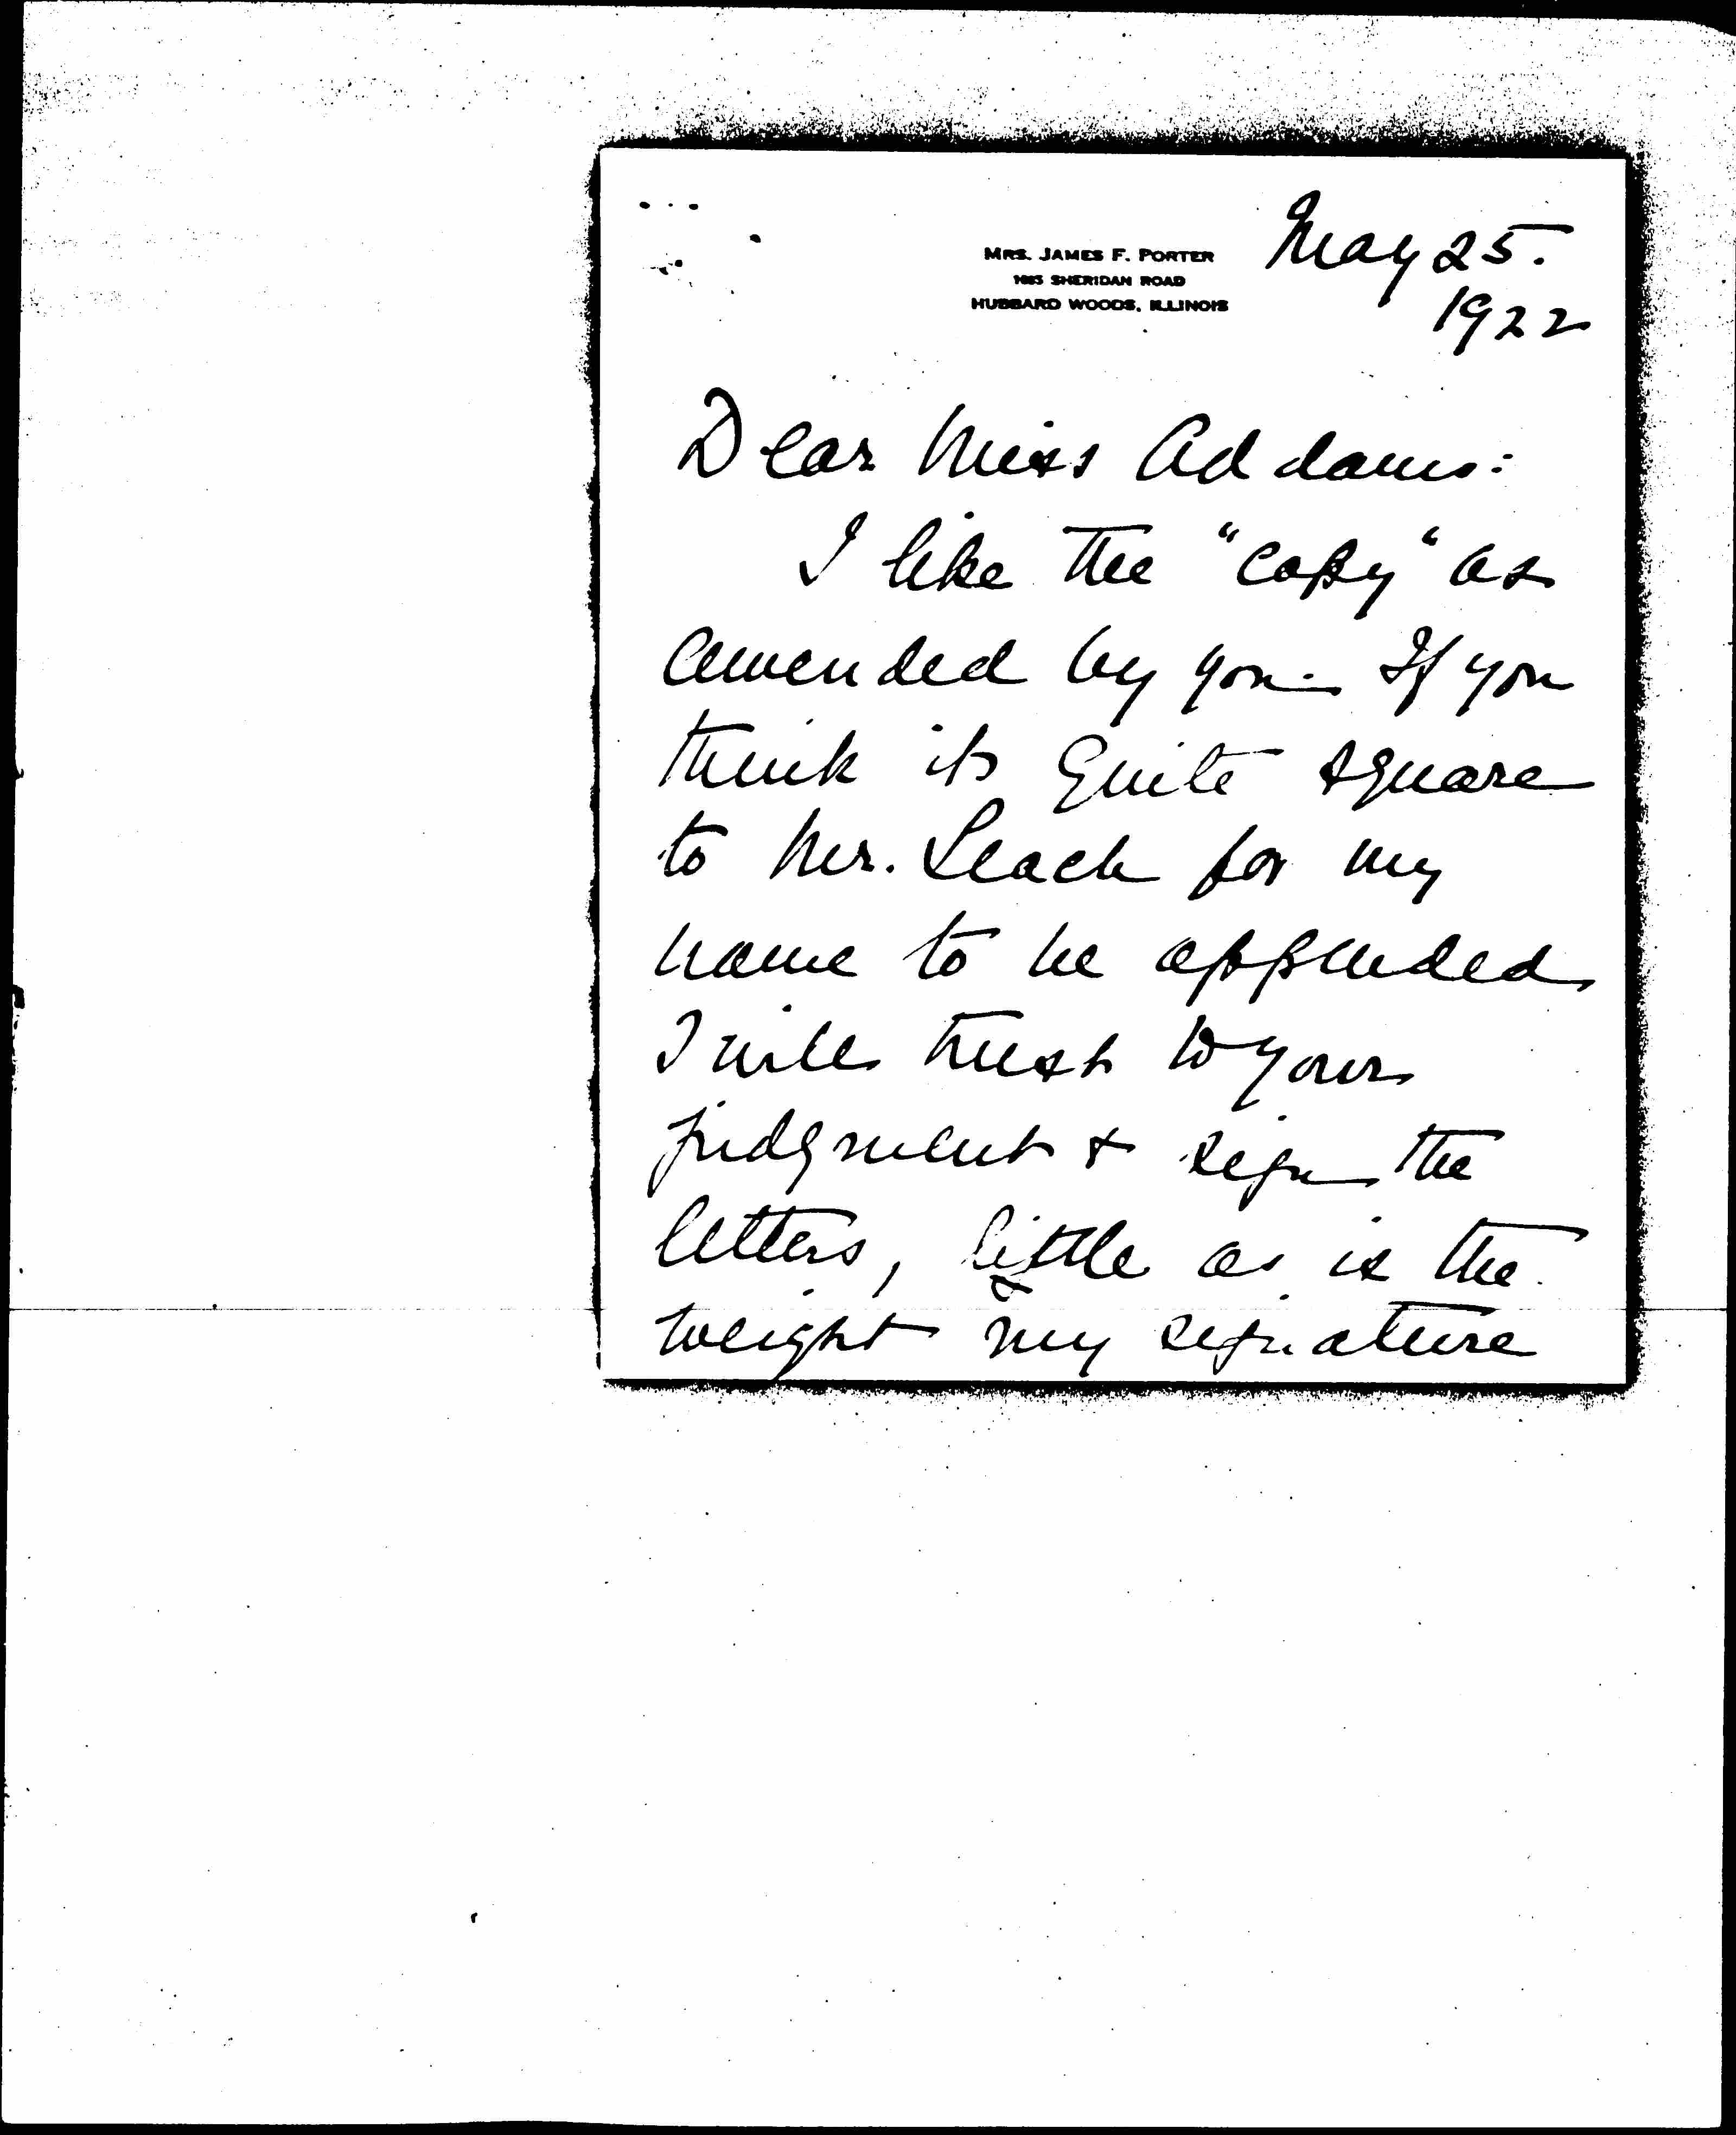 MRS. JAMES F. PORTER
1085 SHERIDAN ROAD
HUBBARD WOODS, ILLINOIS
May 25.
1922
Dear Miss Addams:
I like the "copy" as
amended by you. If you
think its quite square
to Mr. Leach for my
name to be appended
I will trust to your
judgment & sign the
letters, little as is the
weight my signature